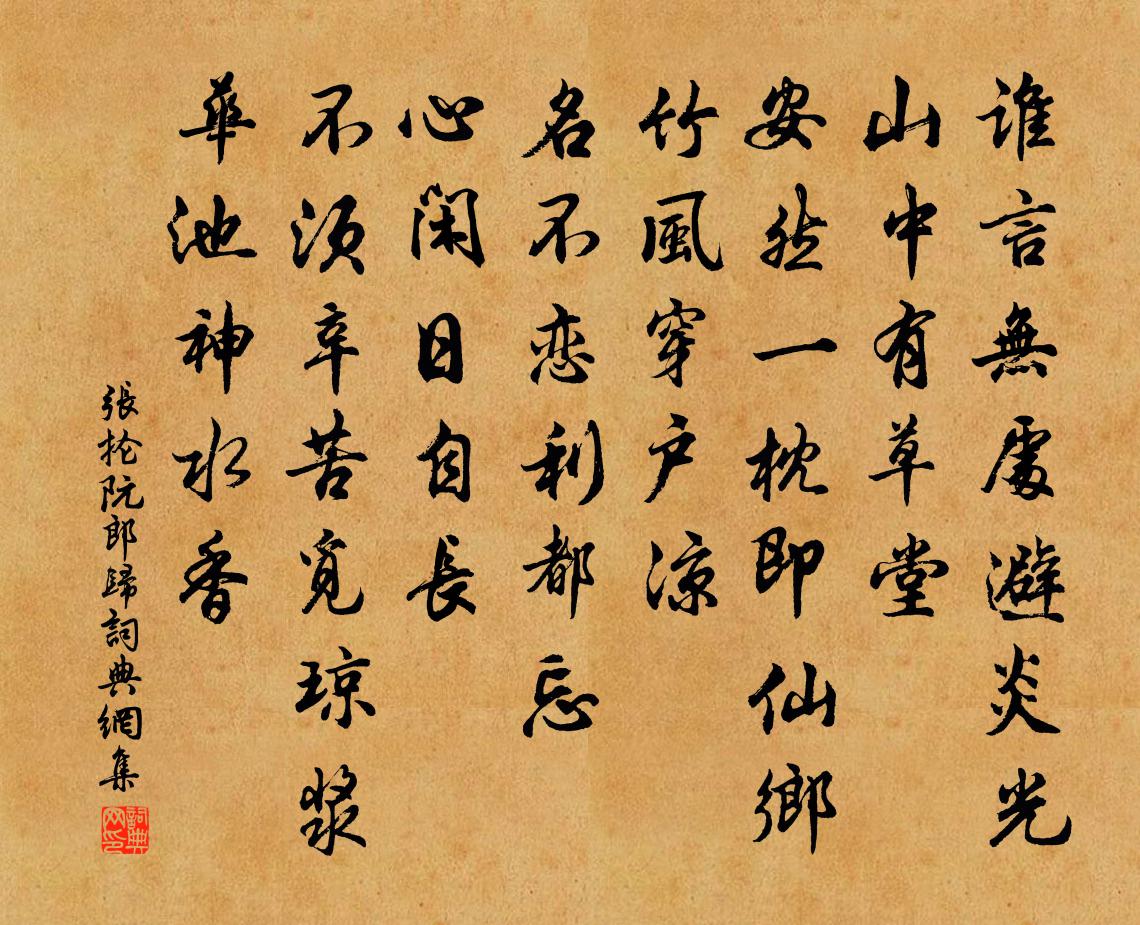 誰言無處避炎光
山中有草堂
安然一枕即仙鄉
竹風穿户涼
名不恋利都忘
心閑日自長
不須辛苦覓琼漿
華池神水香
張掄阮郎歸詞典網集
詞典网印